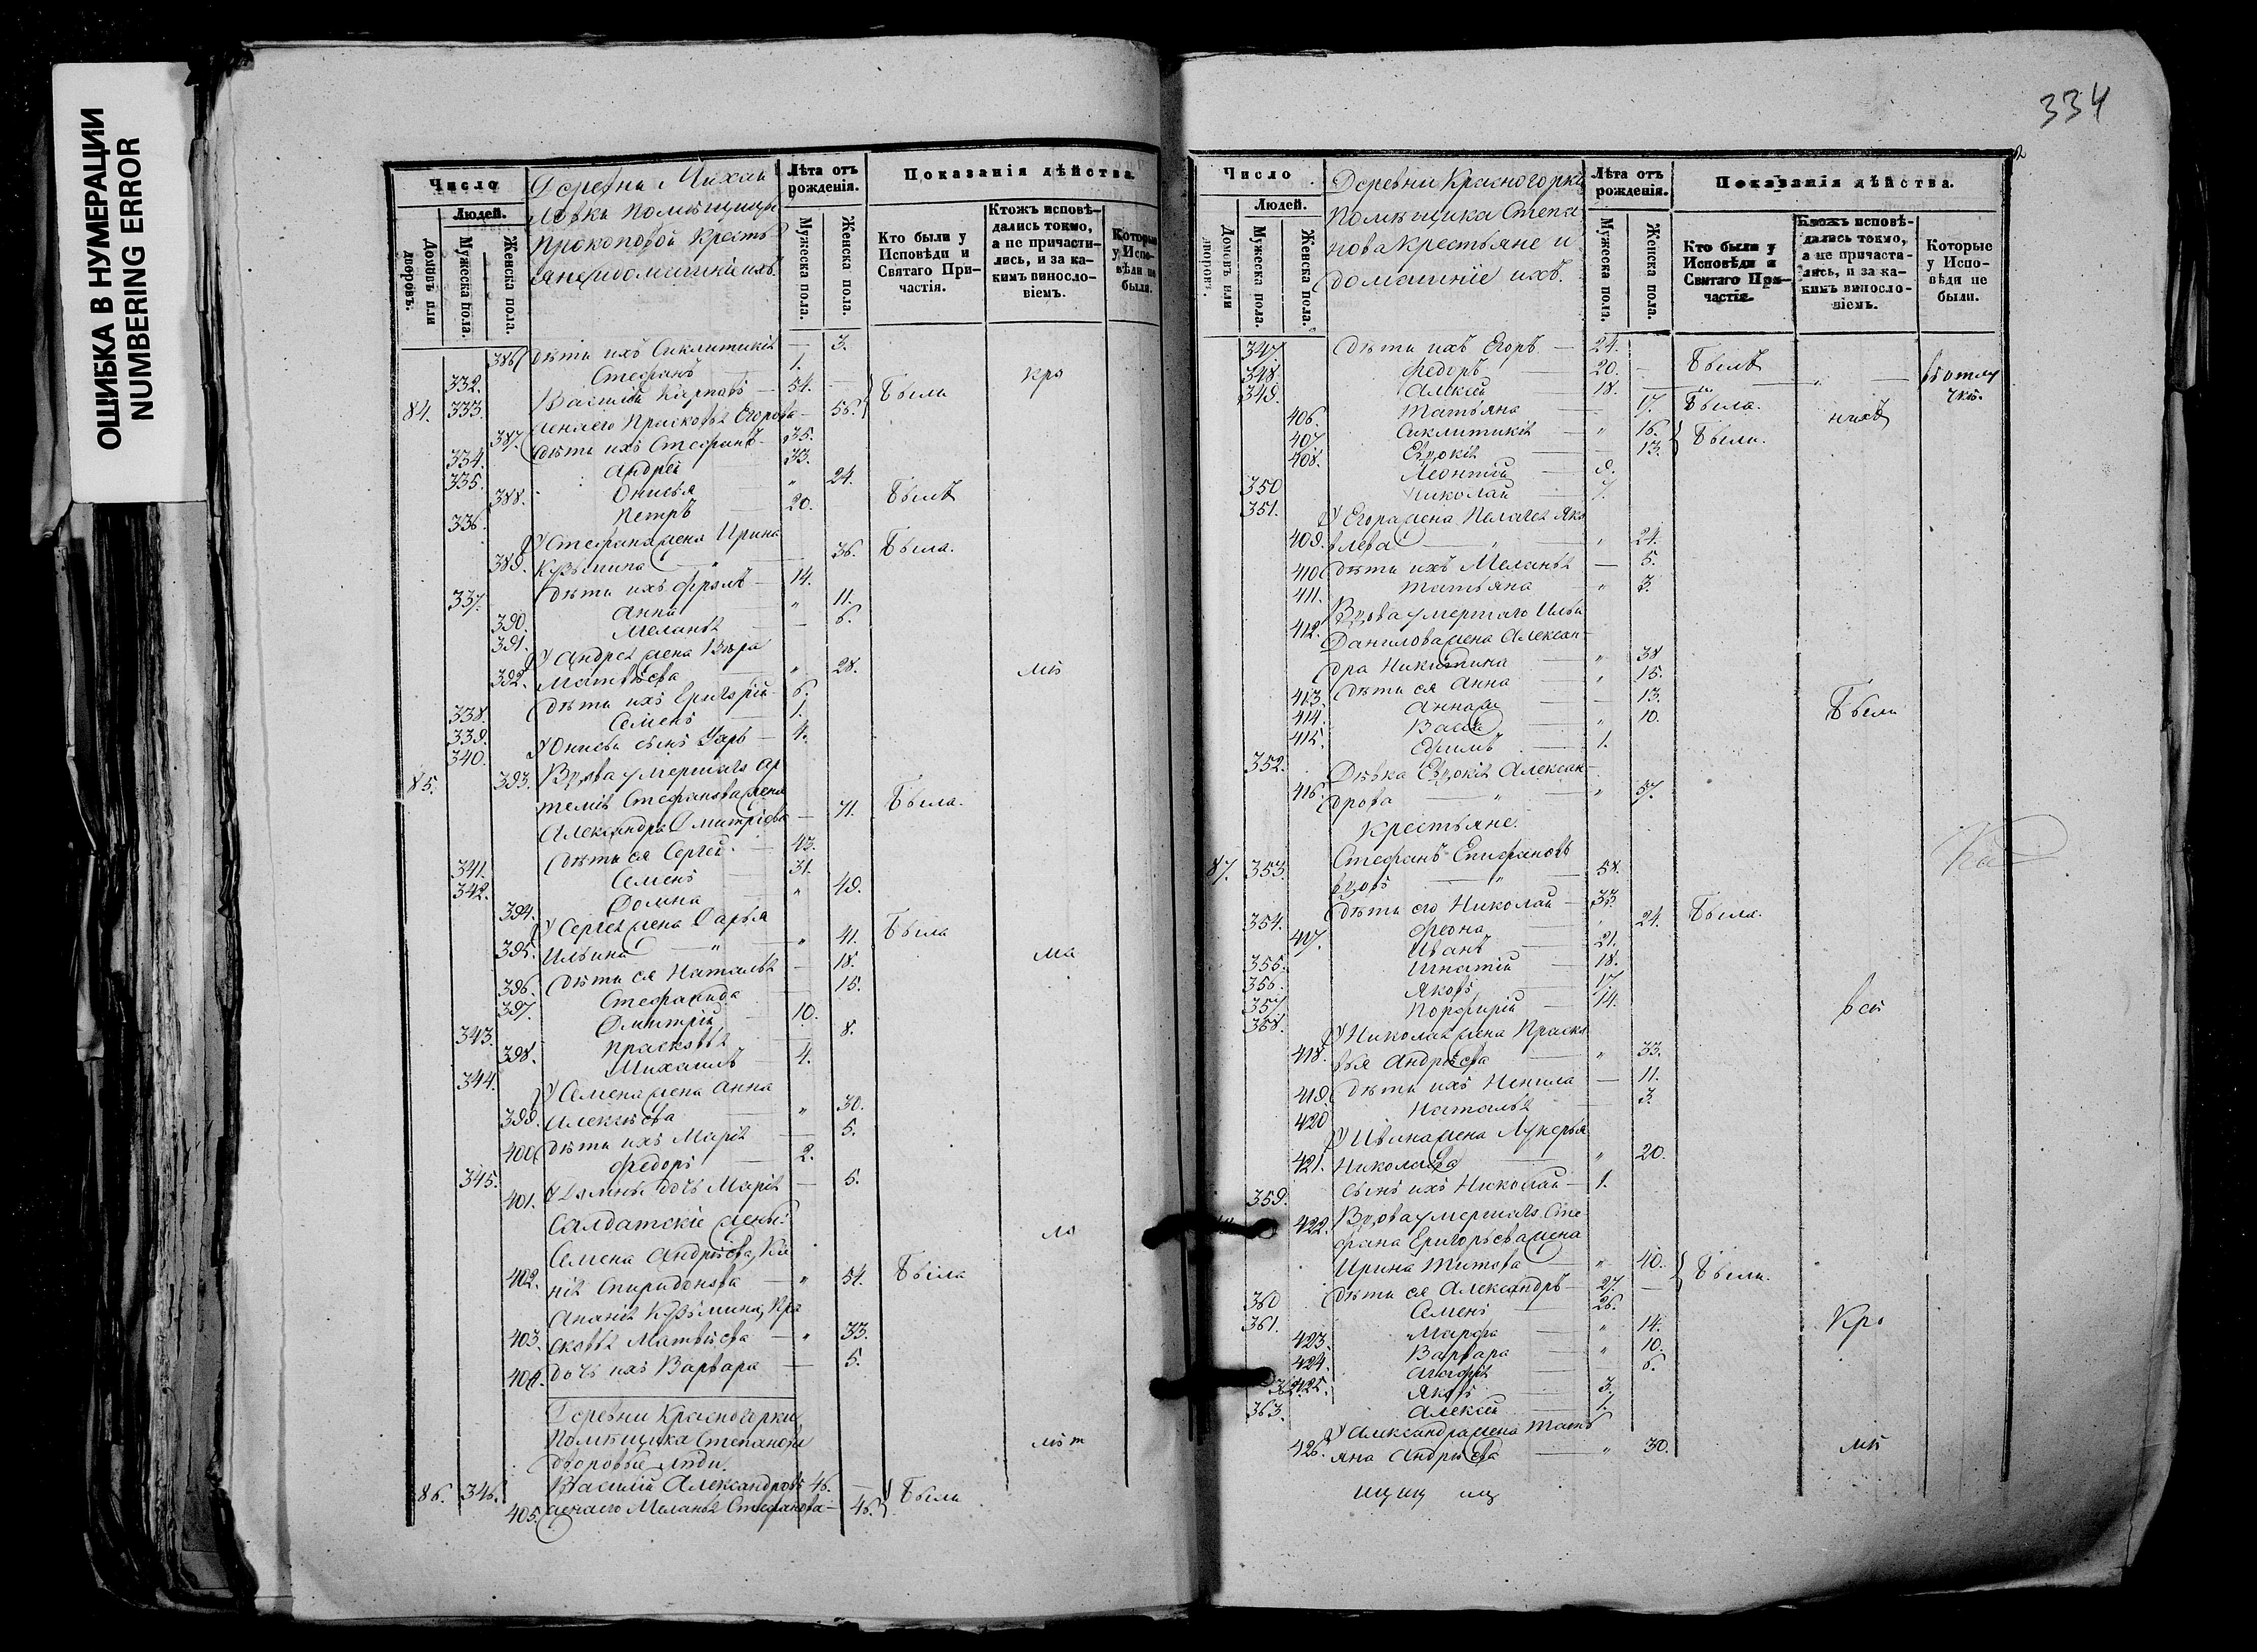 ОШИБКА В НУМЕРАЦИИ
NUMBERING ERROR
Число
Людей.
Домовъ или дворовъ.
Мужеска пола.
Женска пола.
Деревни Михай
ловки помѣщицы
Прокоповой кресть
яне и домашніе ихъ.
Лѣта отъ рожденія.
Мужеска пола.
Женска пола.
Показанія дѣйства.
Кто были у Исповѣди и Святаго Причастія.
Ктожъ исповѣдались токмо, а не причастились, и за какимъ винословіемъ.
Которые у Исповѣди не были.
386 дѣти ихъ Сиклитикія — 3.
332. Стефанъ 1. кро
84. 333. Василій Карповъ — 54. — Были
387. жена его Прасковья Егорова — 56.
334. дѣти ихъ Стефанъ — 35.
335. Андрей 33.
388. Онисья " 24.
336. Петръ 20. Былъ
У Стефана жена Ирина
389. Кузьмина — " — 36. Была.
337. дѣти ихъ Фролъ — 14.
390. Анна " 11.
391. Меланья — 6.
У Андрея жена Вѣра
392. Матвѣева " 28. мѣ
338. дѣти ихъ Григорій — 6.
339. Семенъ 1.
340. У Онисьи сынъ Уаръ — 4.
85. 393. Вдова умершаго Ар
темія Стефанова жена
Александра Дмитріева — 71. Была.
341. дѣти ея Сергей — 43.
342. Семенъ 31.
394. Домна " 49.
У Сергея жена Дарья
395. Ильина — " — " 41. Была
396. дѣти ея Наталья — 18. ма
397. Стефанида 15.
343. Дмитрій 10.
398. Прасковья 8.
344. Михаилъ 4.
У Семена жена Анна
399. Алексѣева " 30.
400 дѣти ихъ Марія — 5.
345. Федоръ 2.
401. У Домны дочь Марія — 5.
Салдатскіе жены:
Семена Андрѣева, Ксе
402. нія Спиридонова — " 54. Была ло
Ананія Кузьмина, Пра
403. сковья Матвѣева — " 33.
404. дочь ихъ Варвара — 5.
Деревни Красногорки
Помѣщика Степанова
дворовые люди. лѣт
86. 346. Василій Александровъ 46. — Были
405. жена его Меланья Стефанова — 46.
334
Число
Людей.
Домовъ или дворовъ.
Мужеска пола.
Женска пола.
Деревни Красногорки
Помѣщика Степа
нова крестьяне и
домашніе ихъ.
Лѣта отъ рожденія.
Мужеска пола.
Женска пола.
Показанія дѣйства.
Кто были у Исповѣди и Святаго Причастія.
Ктожъ исповѣдались токмо, а не причастались, и за какимъ винословіемъ.
Которые у Исповѣди не были.
347. дѣти ихъ Егоръ — 24.
348. Федоръ — 20. — Былъ
349. Алексѣй 18. въ отлу
чкѣ.
406. Татьяна — 17. Была.
407 Сиклитикія — " 16. Были. нихъ
408. Евдокія 13.
350 Леонтій 9.
351. Николай 7.
У Егора жена Пелагея Яко
409. влева — " — " 24.
410 дѣти ихъ Меланья — 5.
411. Татьяна " 3.
412. Вдова умершаго Ильи
Данилова жена Алексан
дра Никитина " 38
413. дѣти ея Анна — " 15.
414. Анна — 13. Были
415. Васса " 10.
352. Ефимъ — 1.
Дѣвка Евдокія Алексан
416. дрова — " — " 57.
Крестьяне.
87. 353. Стефанъ Епифановъ
вдовъ — " — 58.
354. дѣти его Николай — 33.
417. Феона " 24. Была.
355. Иванъ 21.
356. Игнатій 18.
357 Яковъ 17.
358. Порфирій 14. всѣ
У Николая жена Праско
418. вья Андрѣева — " 33.
419 дѣти ихъ Ненила — 11.
420 Наталья 3.
У Ивана жена Лукерья
421. Николаева " 20.
359. сынъ ихъ Николай — 1.
422. Вдова умершаго Сте
фана Григорьева жена
Ирина Титова — " 40. Были.
360 дѣти ея Александръ — 27. —
361. Семенъ 26.
423. Марфа " 14. Кро
424. Варвара " 10.
425. Агафія 6.
362. Яковъ 3.
363. Алексѣй 1.
У Александра жена Тать
426. яна Андрѣева — " 30. мѣ